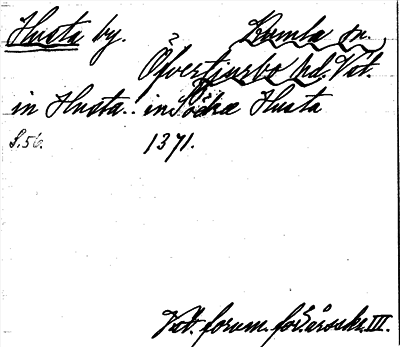 Husta by. Romla sn.
Öfvertjurbo hd. Vst.
in Husta.. in Södra Husta
S. 56. 1371.
Vst. fornm. för:s årsskr. III.